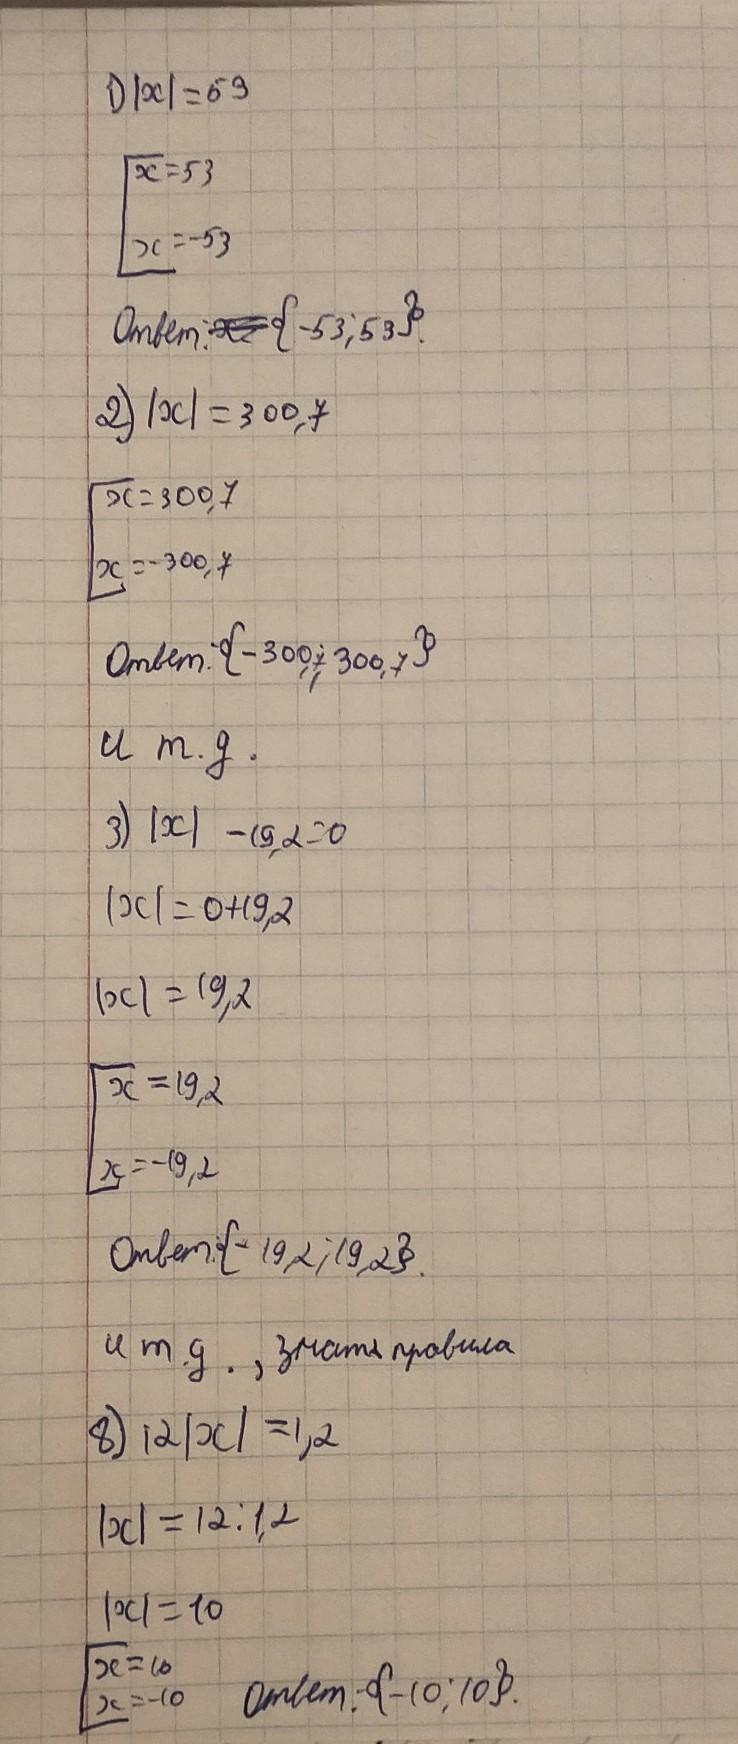 1) |x| = 53
x = 53
x = -53
Ответ: {-53; 53}.
2) |x| = 300,7
x = 300,7
x = -300,7
Ответ: {-300,7; 300,7}
и т.д.
3) |x| - 19,2 = 0
|x| = 0+19,2
|x| = 19,2
x = 19,2
x = -19,2
Ответ: {-19,2; 19,2}.
и т.д., знать правила
8) 12|x| = 1,2
|x| = 12:1,2
|x| = 10
x = 10
x = -10
Ответ: {-10; 10}.